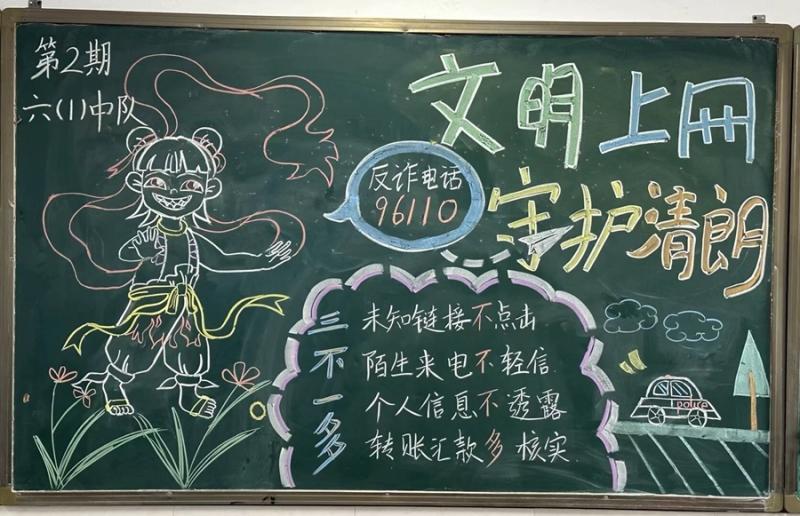 第2期
六(1)中队
文明上网
守护清朗
反诈电话
96110
三不一多
未知链接不点击
陌生来电不轻信
个人信息不透露
转账汇款多核实
police